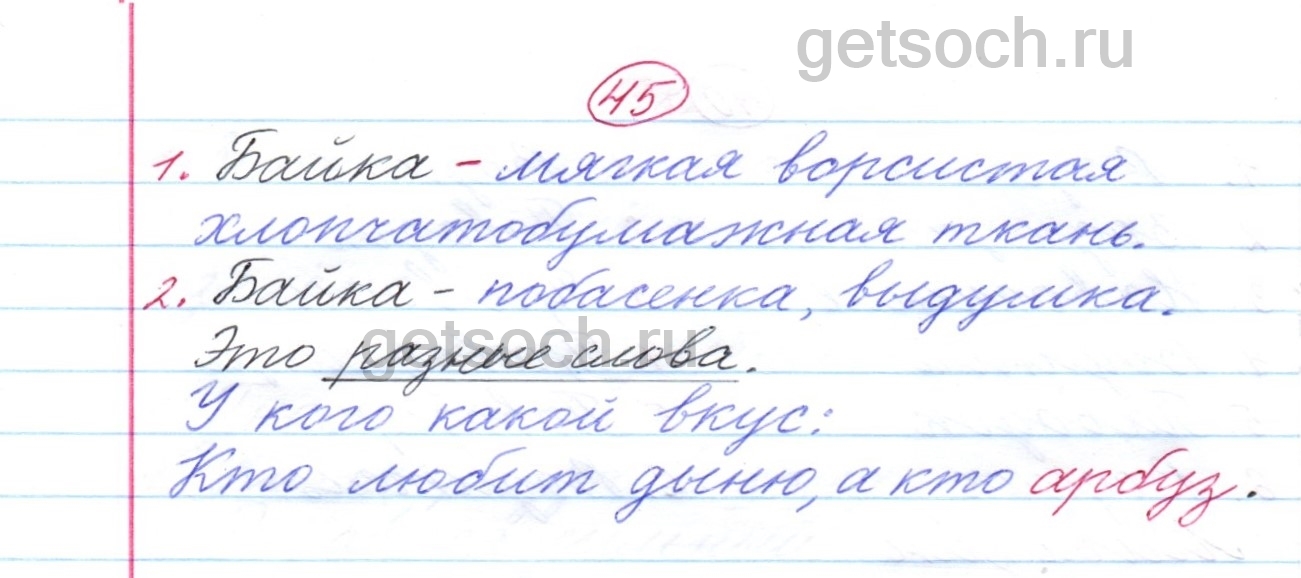 getsoch.ru
45
1. Байка - мягкая ворсистая
хлопчатобумажная ткань.
2. Байка - побасенка, выдумка.
Это разные слова.
getsoch.ru
У кого какой вкус:
Кто любит дыню, а кто арбуз.